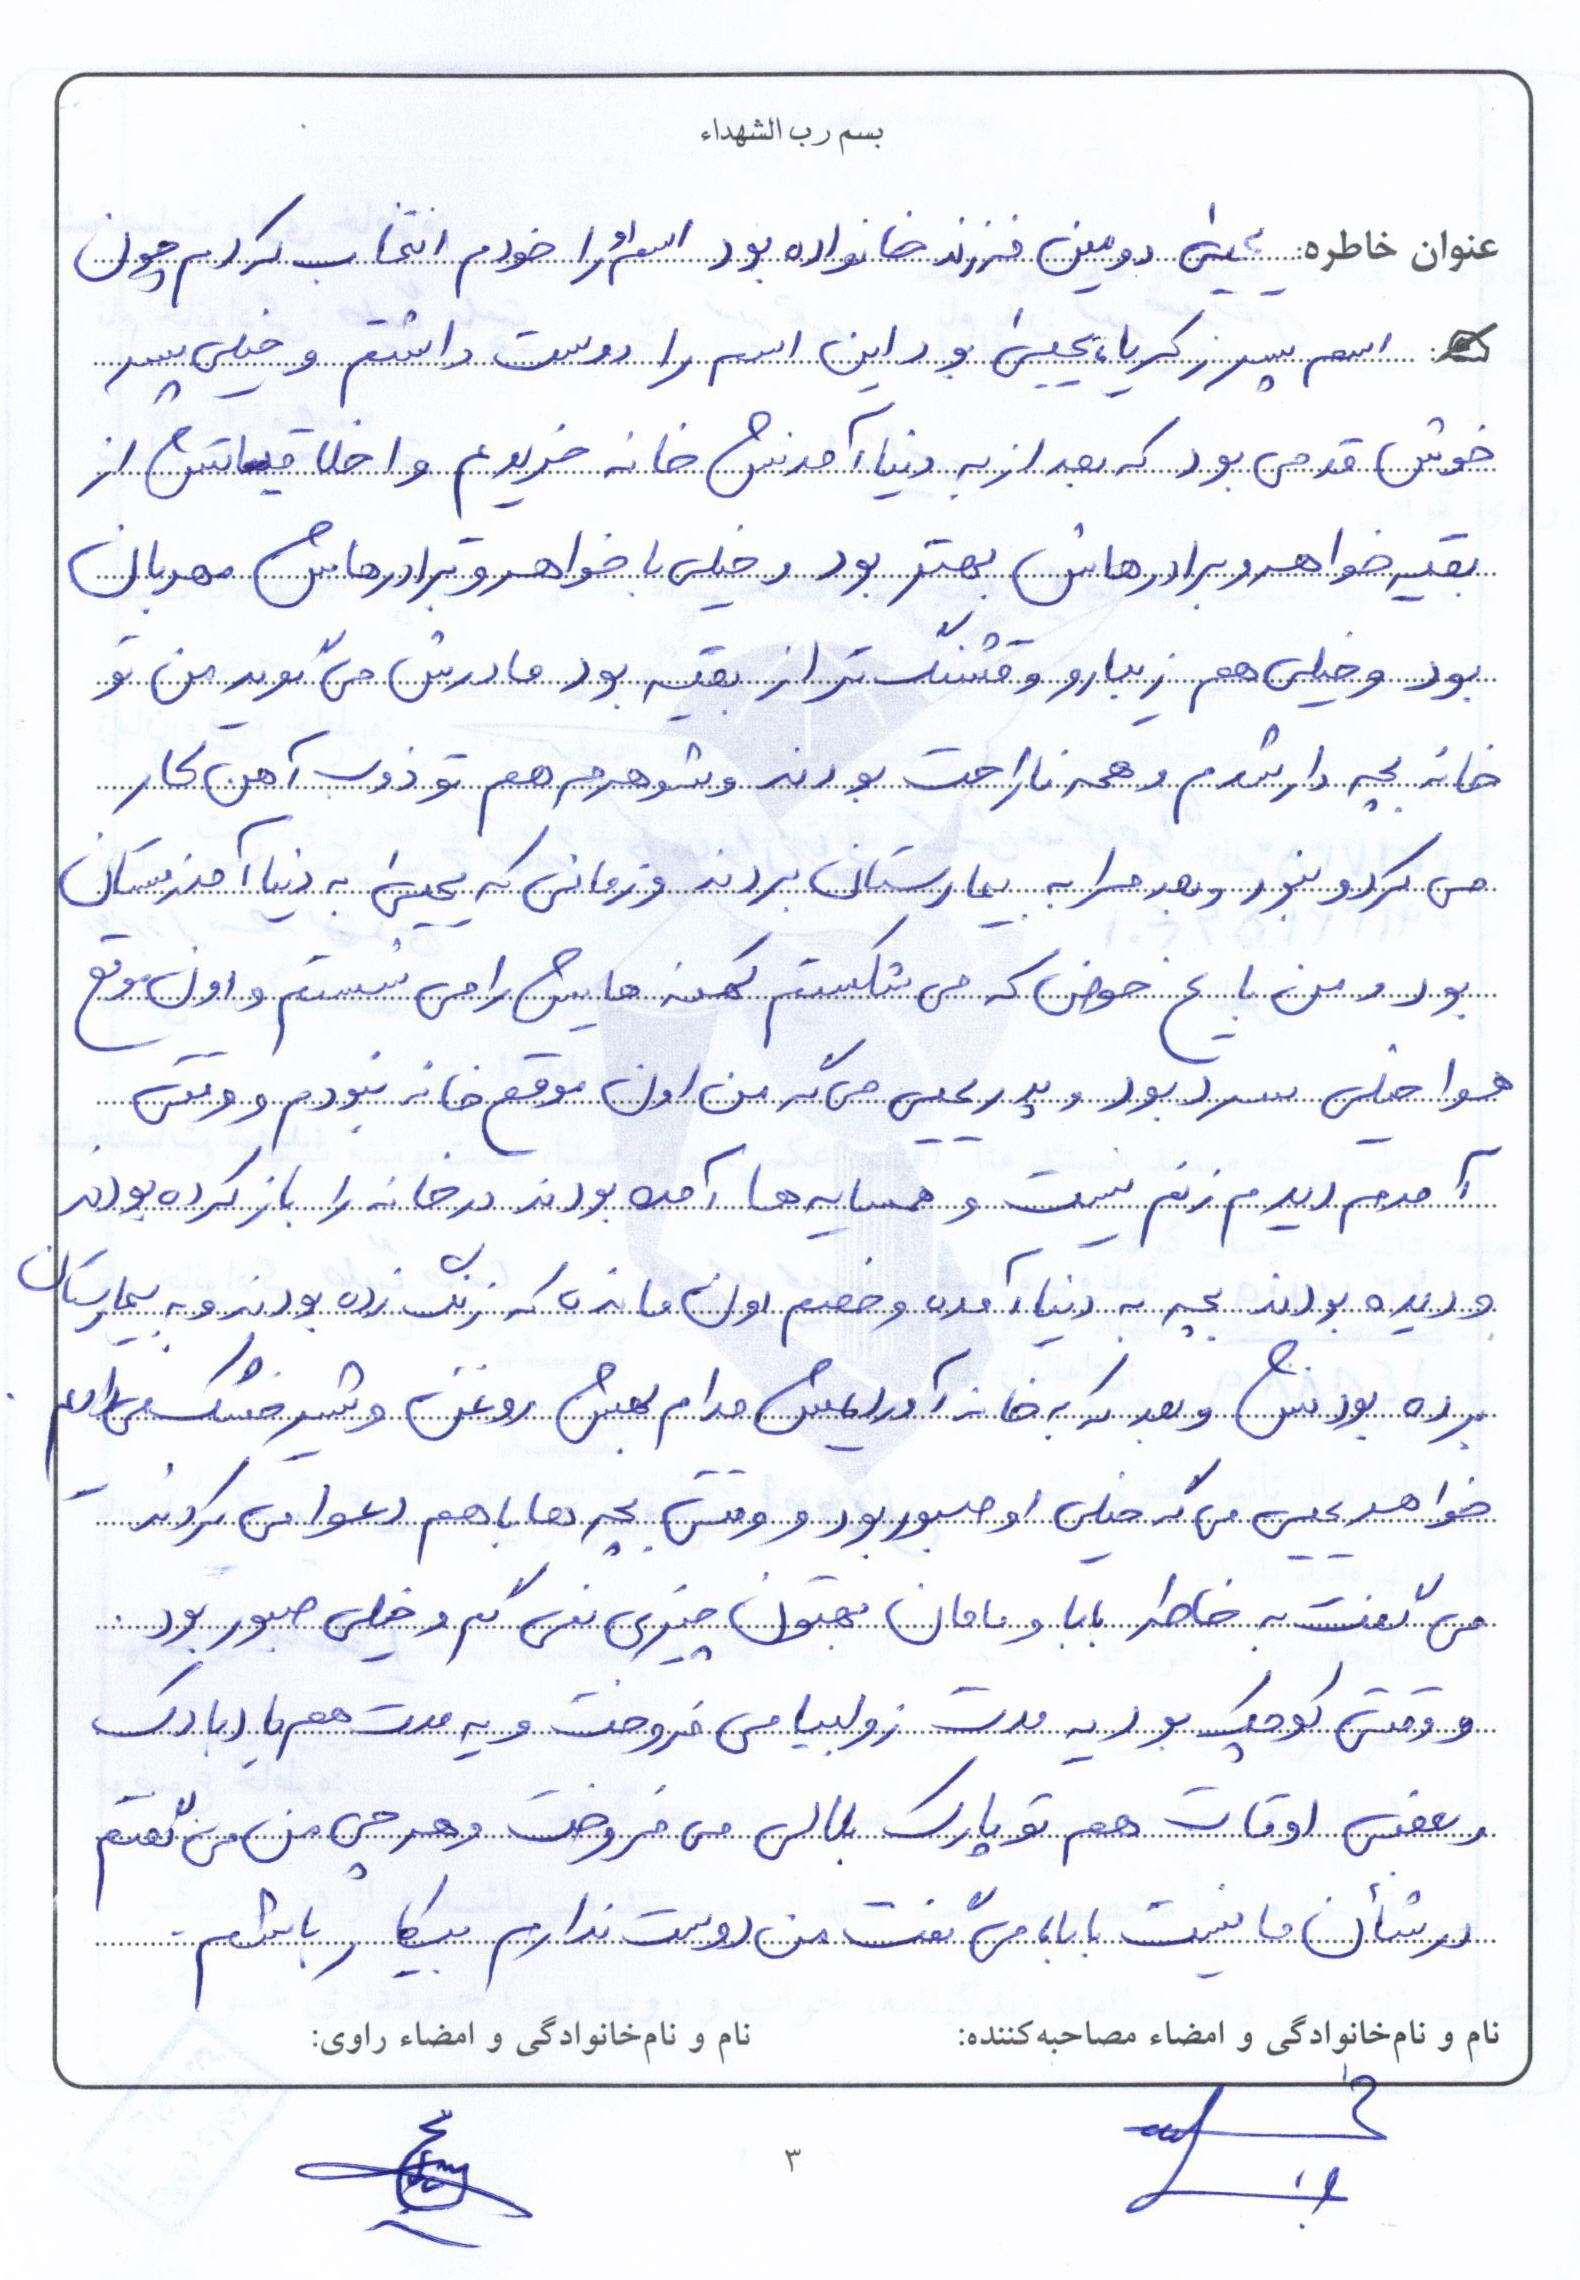 بسم رب الشهداء
عنوان خاطره: یحیی دومین فرزند خانواده بود اسم او را خودم انتخاب کردم چون
اسم پسر زکریا، یحیی بود این اسم را دوست داشتم و خیلی پسر
خوش قدمی بود که بعد از به دنیا آمدنش خانه خریدیم و اخلاقیاتش از
بقیه خواهر و برادرهاش بهتر بود و خیلی با خواهر و برادرهاش مهربان
بود و خیلی هم زیبارو و قشنگ تر از بقیه بود مادرش می گوید من تو
خانه بچه دار شدم و همه ناراحت بودند و شوهرم هم تو ذوب آهن کار
می کرد و نبود و بعد مرا به بیمارستان بردند و زمانی که یحیی به دنیا آمد زمستان
بود و من با یخ حوض که می شکستم کهنه هایش را می شستم و اون موقع
هوا خیلی سرد بود و پدر یحیی می گه من اون موقع خانه نبودم و وقتی
آمدم دیدم زنم نیست و همسایه ها آمده بودند در خانه را باز کرده بودند
و دیده بودند بچه به دنیا آمده و خصم اون مانده که زنگ زده بودند و به بیمارستان
برده بودنش و بعد که به خانه آوردیمش مدام بهش روغن و شیر خشک می دادیم
خواهر یحیی می گه خیلی او صبور بود و وقتی بچه ها با هم دعوا می کردند
می گفت به خاطر بابا و مامان بهتون چیزی نمی گم و خیلی صبور بود.
و وقتی کوچیک بود یه مدت زولبیا می فروخت و یه مدت هم بادبادک
و بعضی اوقات هم تو پارک بلالی می فروخت و هر چی من می گفتم
در شأن ما نیست بابا، می گفت من دوست ندارم بیکار باشم.
نام و نام‌خانوادگی و امضاء مصاحبه‌کننده:
نام و نام‌خانوادگی و امضاء راوی:
۳